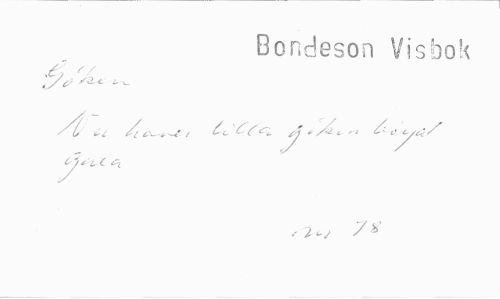 Bondeson Visbok
Göken
Nu haver lilla göken börjat
gala
nr 78